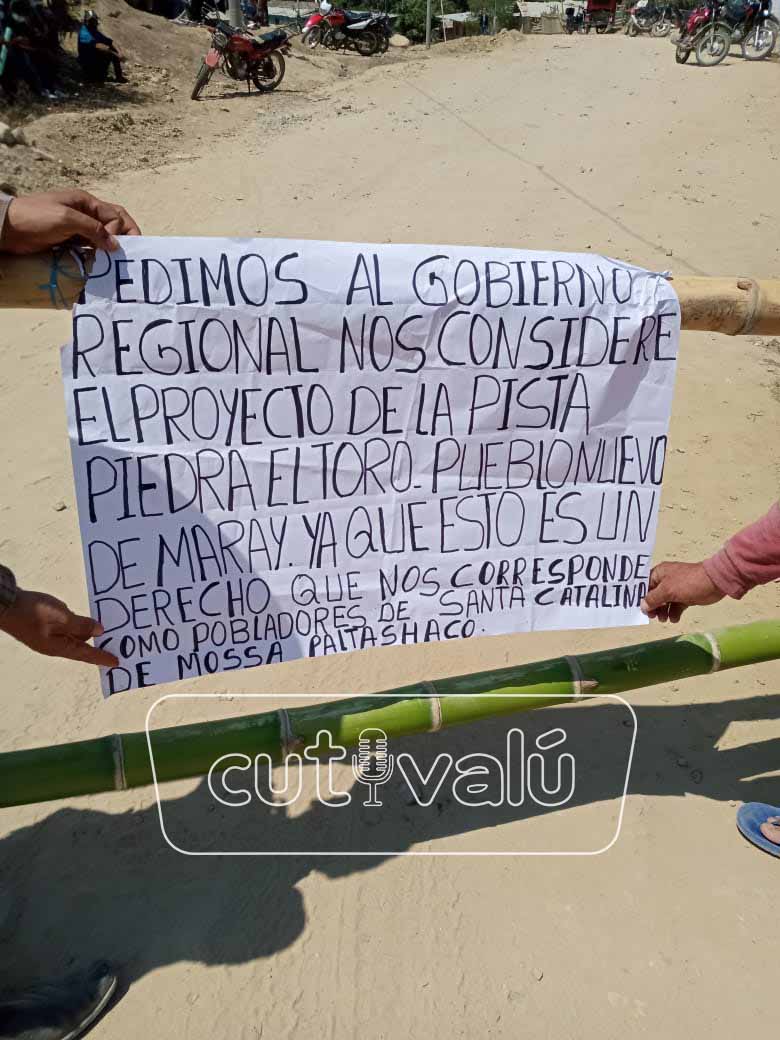 PEDIMOS AL GOBIERNO
REGIONAL NOS CONSIDERE
EL PROYECTO DE LA PISTA
PIEDRA EL TORO. PUEBLO NUEVO
DE MARAY. YA QUE ESTO ES UN
DERECHO QUE NOS CORRESPONDE
COMO POBLADORES DE SANTA CATALINA
DE MOSSA PALTASHACO.
cutivalú